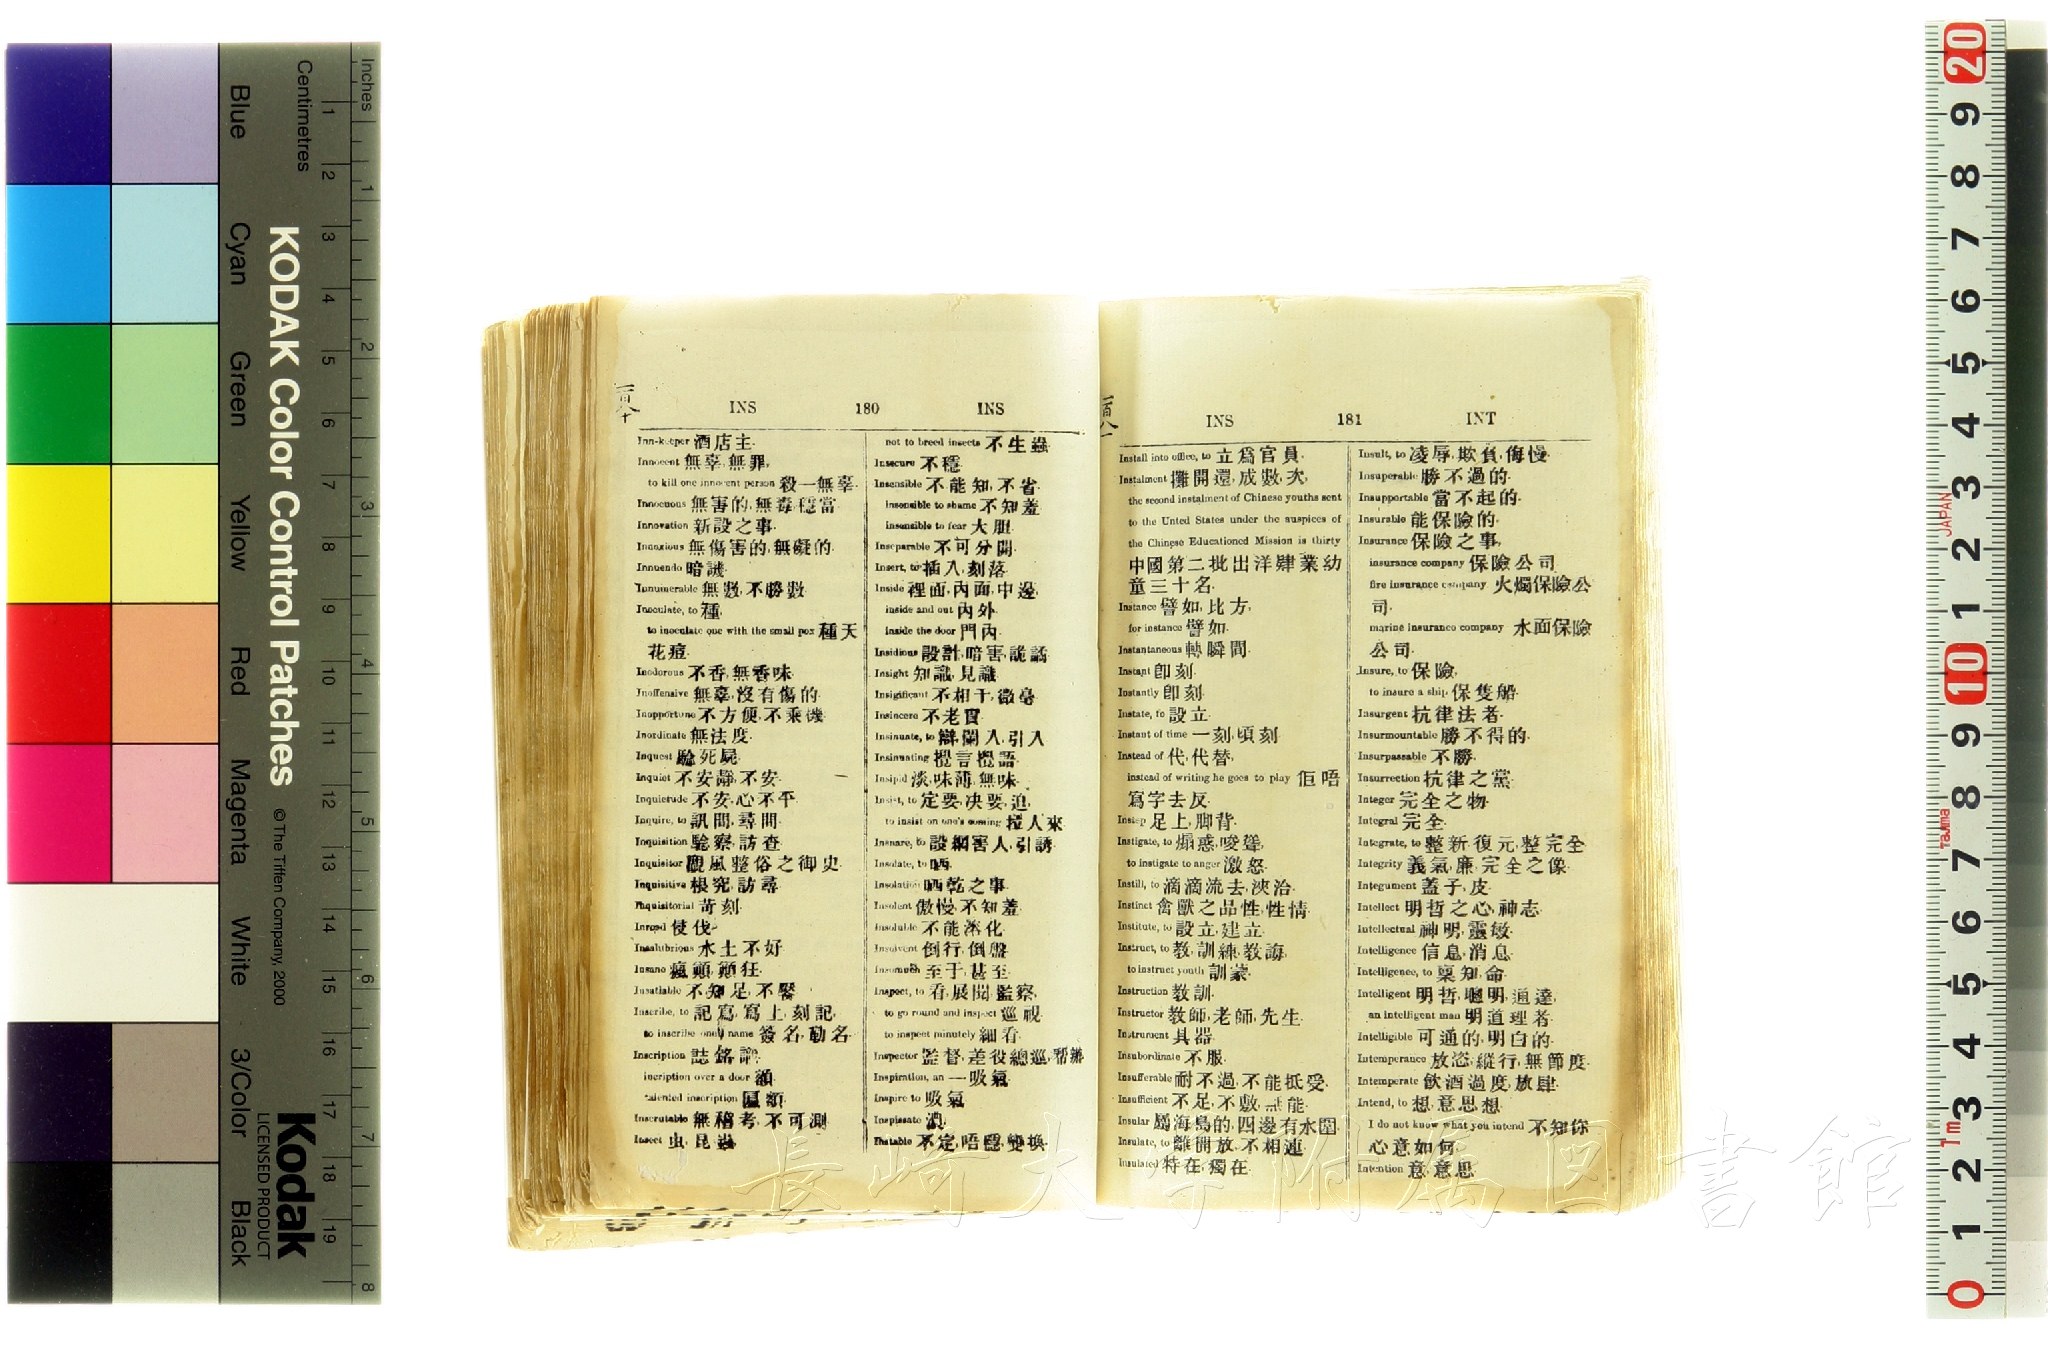 Inches
Centimetres
KODAK Color Control Patches
© The Tiffen Company, 2000
Kodak
LICENSED PRODUCT
Blue
Cyan
Green
Yellow
Red
Magenta
White
3/Color
Black
一百八十
INS 180 INS
Inn-keeper 酒店主.
Innocent 無辜,無罪,
to kill one innocent person 殺一無辜.
Innocuous 無害的,無毒,穩當.
Innovation 新設之事.
Innoxious 無傷害的,無礙的.
Innuendo 暗譏.
Innumerable 無數,不勝數.
Inoculate, to 種,
to inoculate one with the small pox 種天
花痘.
Inodorous 不香,無香味.
Inoffensive 無辜,沒有傷的.
Inopportune 不方便,不乘機.
Inordinate 無法度.
Inquest 驗死屍.
Inquiet 不安靜,不安.
Inquietude 不安,心不平.
Inquire, to 訊問,尋問.
Inquisition 驗察,訪查.
Inquisitor 觀風整俗之御史.
Inquisitive 根究,訪尋.
Inquisitorial 苛刻.
Inroad 使伐.
Insalubrious 水土不好.
Insane 瘋顛,顛狂.
Insatiable 不知足,不饜.
Inscribe, to 記寫,寫上,刻記,
to inscribe one's name 簽名,勒名.
Inscription 誌,銘,
incription over a door 額.
talented inscription 匾額.
Inscrutable 無稽考,不可測.
Insect 虫,昆蟲,
not to breed insects 不生蟲.
Insecure 不穩.
Insensible 不能知,不省.
insensible to shame 不知羞.
insensible to fear 大胆.
Inseparable 不可分開.
Insert, to 插入,刻落.
Inside 裡面,內面,中邊,
inside and out 內外.
inside the door 門內.
Insidious 設計,暗害,詭譎.
Insight 知識,見識.
Insignificant 不相干,微毫.
Insincere 不老實.
Insinuate, to 辯闡入,引入
Insinuating 攪言攪語.
Insipid 淡,味薄,無味.
Insist, to 定要,决要,迫,
to insist on one's coming 擡人來.
Insnare, to 設網害人,引誘.
Insolate, to 晒.
Insolation 晒乾之事.
Insolent 傲慢,不知羞.
Insoluble 不能溶化.
Insolvent 倒行,倒盤.
Insomuch 至于,甚至.
Inspect, to 看,展閱,監察,
to go round and inspect 巡視.
to inspect minutely 細看.
Inspector 監督,差役總巡,幇辦
Inspiration, an 一吸氣.
Inspire to 吸氣
Inspissate 濃.
Instable 不定,唔穩,變換.
一百八一
INS 181 INT
Install into office, to 立爲官員.
Instalment 攤開還,成數,次,
the second instalment of Chinese youths sent
to the Unted States under the auspices of
the Chinese Educationed Mission is thirty
中國第二批出洋肄業幼
童三十名.
Instance 譬如,比方,
for instance 譬如.
Instantaneous 轉瞬間.
Instant 卽刻.
Instantly 卽刻.
Instate, to 設立.
Instant of time 一刻,頃刻.
Instead of 代,代替,
instead of writing he goes to play 佢唔
寫字去反.
Instep 足上,脚背.
Instigate, to 煽惑,唆聳,
to instigate to anger 激怒.
Instill, to 滴滴流去,浹洽.
Instinct 禽獸之品性,性情.
Institute, to 設立,建立.
Instruct, to 教,訓練,教誨,
to instruct youth 訓蒙.
Instruction 教訓.
Instructor 教師,老師,先生.
Instrument 具器.
Insubordinate 不服.
Insufferable 耐不過,不能抵受.
Insufficient 不足,不敷,
Insular 屬海島的,四邊有水圍.
Insulate, to 離開放,不相連.
Insulated 特在,獨在.
Insult, to 凌辱,欺負,侮慢.
Insuperable 勝不過的.
Insupportable 當不起的.
Insurable 能保險的.
Insurance 保險之事,
insurance company 保險公司.
fire insurance company 火燭保險公
司.
marine insurance company 水面保險
公司.
Insure, to 保險,
to insure a ship 保隻船.
Insurgent 抗律法者.
Insurmountable 勝不得的.
Insurpassable 不勝.
Insurrection 抗律之黨.
Integer 完全之物.
Integral 完全.
Integrate, to 整新,復元,整完全
Integrity 義氣,廉,完全之像.
Integument 蓋子,皮.
Intellect 明哲之心,神志.
Intellectual 神明,靈敏.
Intelligence 信息,消息.
Intelligence, to 稟知,命.
Intelligent 明哲,聰明,通達,
an intelligent man 明道理者.
Intelligible 可通的,明白的.
Intemperance 放恣,縱行,無節度.
Intemperate 飲酒過度,放肆.
Intend, to 想,意思想.
I do not know what you intend 不知你
心意如何.
Intention 意,意思.
長崎大学附属図書館
JAPAN
Tajima
1m